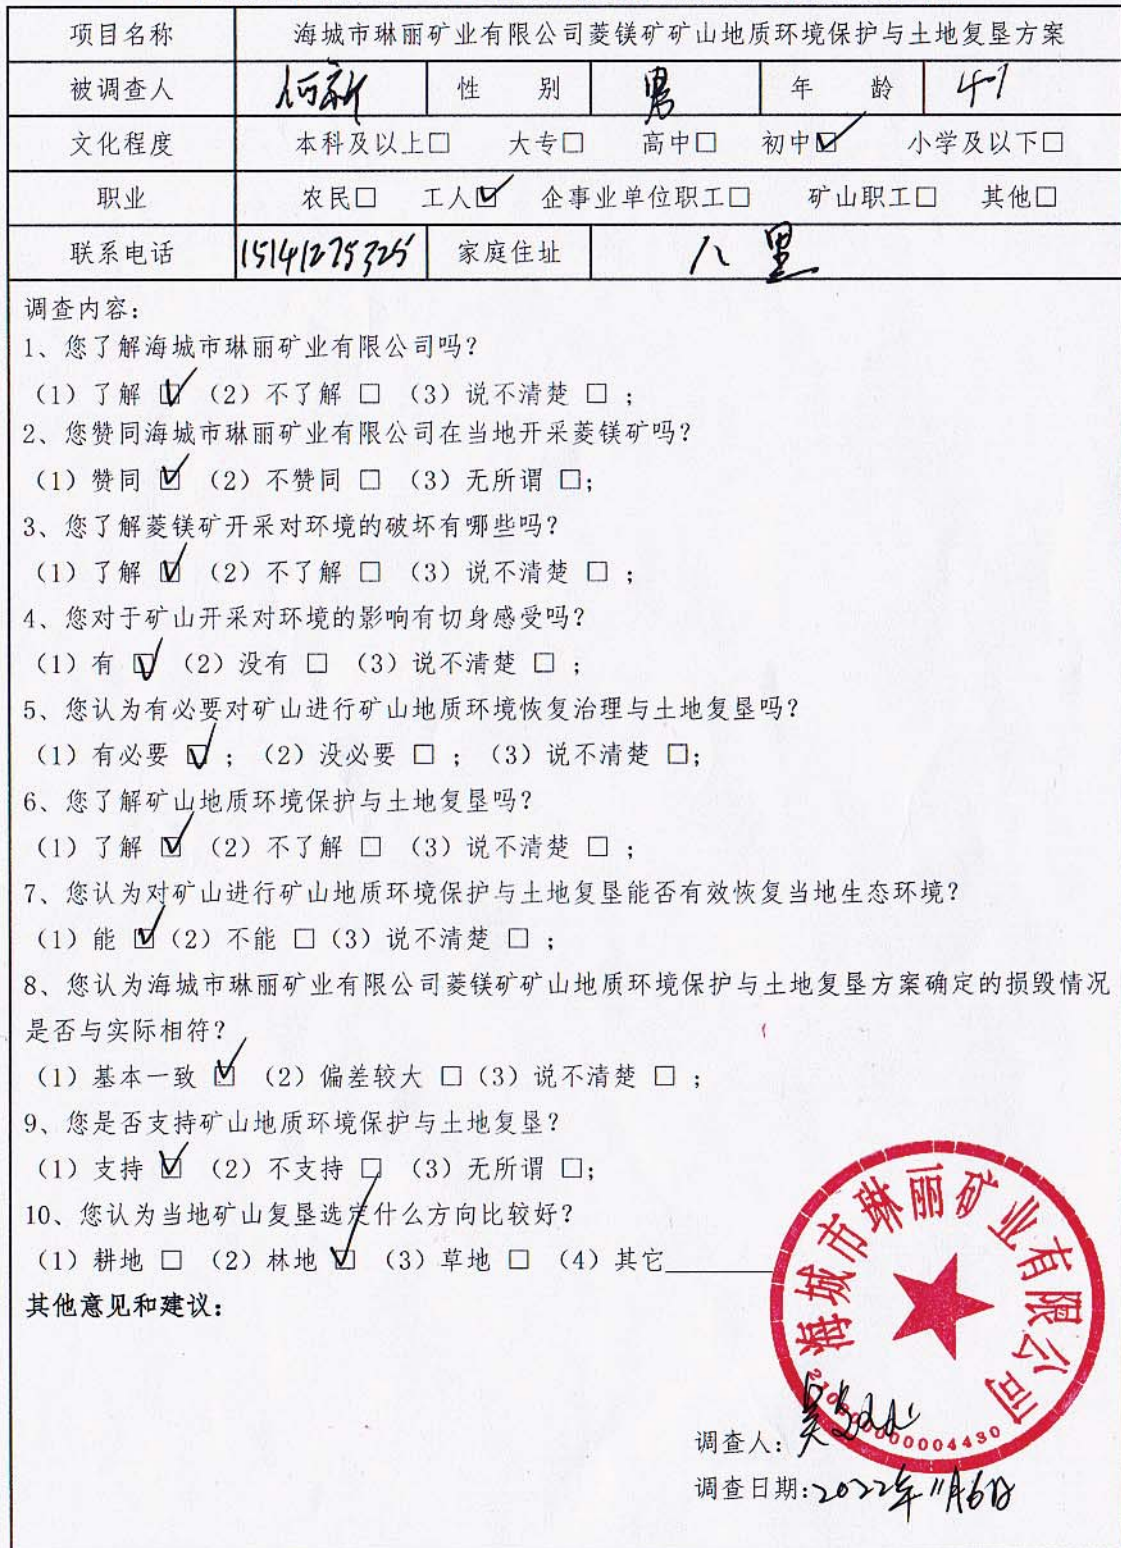 项目名称 海城市琳丽矿业有限公司菱镁矿矿山地质环境保护与土地复垦方案
被调查人 何新 性 别 男 年 龄 47
文化程度 本科及以上□ 大专□ 高中□ 初中☑ 小学及以下□
职业 农民□ 工人☑ 企事业单位职工□ 矿山职工□ 其他□
联系电话 15141275325 家庭住址 八里
调查内容:
1、您了解海城市琳丽矿业有限公司吗?
(1)了解 ☑ (2)不了解 □ (3)说不清楚 □ ;
2、您赞同海城市琳丽矿业有限公司在当地开采菱镁矿吗?
(1)赞同 ☑ (2)不赞同 □ (3)无所谓 □;
3、您了解菱镁矿开采对环境的破坏有哪些吗?
(1)了解 ☑ (2)不了解 □ (3)说不清楚 □ ;
4、您对于矿山开采对环境的影响有切身感受吗?
(1)有 ☑ (2)没有 □ (3)说不清楚 □ ;
5、您认为有必要对矿山进行矿山地质环境恢复治理与土地复垦吗?
(1)有必要 ☑ ;(2)没必要 □ ;(3)说不清楚 □;
6、您了解矿山地质环境保护与土地复垦吗?
(1)了解 ☑ (2)不了解 □ (3)说不清楚 □ ;
7、您认为对矿山进行矿山地质环境保护与土地复垦能否有效恢复当地生态环境?
(1)能 ☑(2)不能 □(3)说不清楚 □ ;
8、您认为海城市琳丽矿业有限公司菱镁矿矿山地质环境保护与土地复垦方案确定的损毁情况
是否与实际相符?
(1)基本一致 ☑ (2)偏差较大 □(3)说不清楚 □ ;
9、您是否支持矿山地质环境保护与土地复垦?
(1)支持 ☑ (2)不支持 □ (3)无所谓 □;
10、您认为当地矿山复垦选定什么方向比较好?
(1)耕地 □ (2)林地 ☑ (3)草地 □ (4)其它________
其他意见和建议:
海城市琳丽矿业有限公司
调查人:
调查日期:2022年11月6日